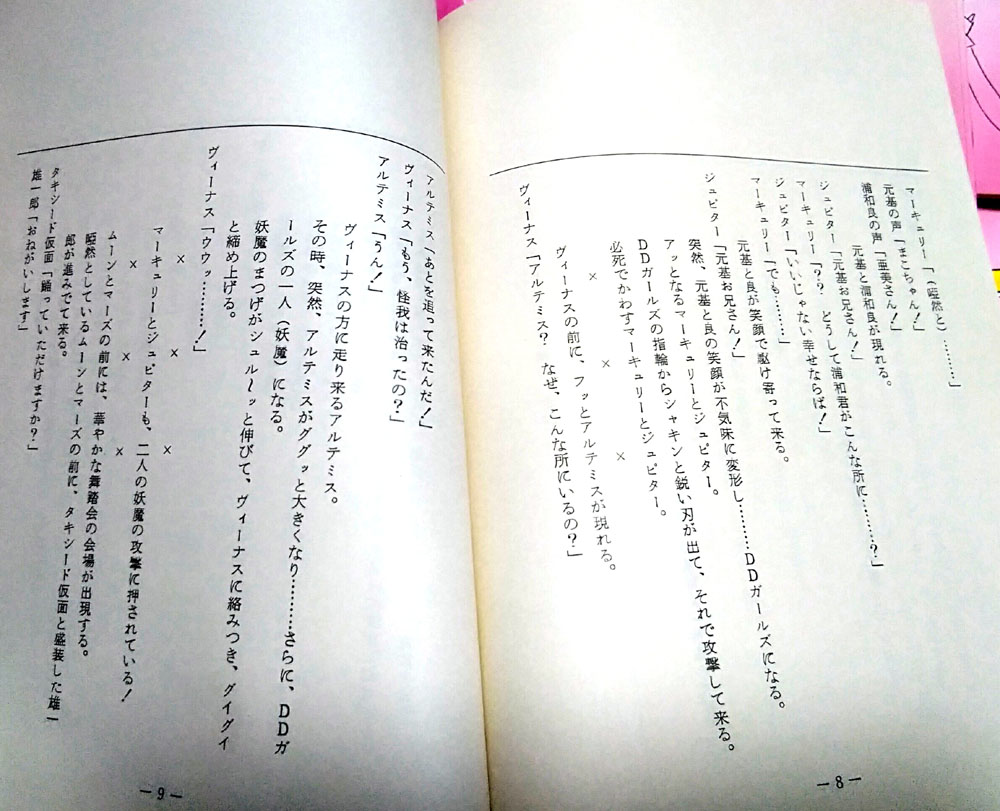 マーキュリー「（唖然と）………」
元基の声「まこちゃん！」
浦和良の声「亜美さん！」
元基と浦和良が現れる。
ジュピター「元基お兄さん！」
マーキュリー「？？　どうして浦和君がこんな所に………？」
ジュピター「いいじゃない幸せならば！」
マーキュリー「でも………」
元基と良が笑顔で駆け寄って来る。
ジュピター「元基お兄さん！」
突然、元基と良の笑顔が不気味に変形し………DDガールズになる。
アッとなるマーキュリーとジュピター。
DDガールズの指輪からシャキンと鋭い刃が出て、それで攻撃して来る。
必死でかわすマーキュリーとジュピター。
×　×　×
ヴィーナスの前に、フッとアルテミスが現れる。
ヴィーナス「アルテミス？　なぜ、こんな所にいるの？」
－8－
アルテミス「あとを追って来たんだ！」
ヴィーナス「もう、怪我は治ったの？」
アルテミス「うん！」
ヴィーナスの方に走り来るアルテミス。
その時、突然、アルテミスがググッと大きくなり………さらに、DDガ
ールズの一人（妖魔）になる。
妖魔のまつげがシュル～ッと伸びて、ヴィーナスに絡みつき、グイグイ
と締め上げる。
ヴィーナス「ウウッ………！」
×　×　×
マーキュリーとジュピターも、二人の妖魔の攻撃に押されている！
×　×　×
ムーンとマーズの前には、華やかな舞踏会の会場が出現する。
唖然としているムーンとマーズの前に、タキシード仮面と盛装した雄一
郎が進みでて来る。
タキシード仮面「踊っていただけますか？」
雄一郎「おねがいします」
－9－